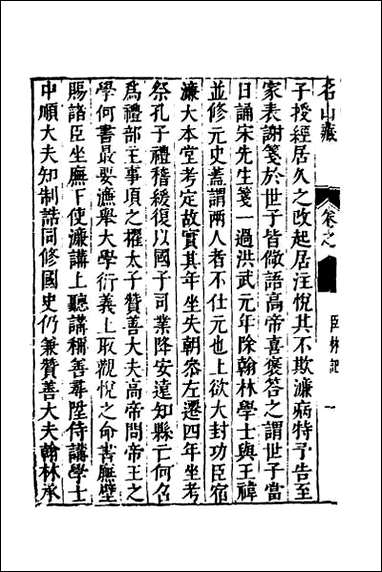 名山藏
卷之
臣林記
一
子授經居久之改起居注悅其不欺濂病特予告至
家表謝箋於世子皆儆語高帝喜褒荅之謂世子當
日誦宋先生箋一過洪武元年除翰林學士與王禕
並修元史蓋謂兩人者不仕元也上欲大封功臣宿
濂大本堂考定故實其年坐失朝叅左遷四年坐考
祭孔子禮稽緩復以國子司業降安遠知縣亡何召
爲禮部主事頃之擢太子贊善大夫高帝問帝王之
學何書最要濂舉大學衍義上取觀悅之命書廡壁
賜諸臣坐廡下使濂講上聽講稱善尋陞侍講學士
中順大夫知制誥同修國史仍兼贊善大夫翰林承